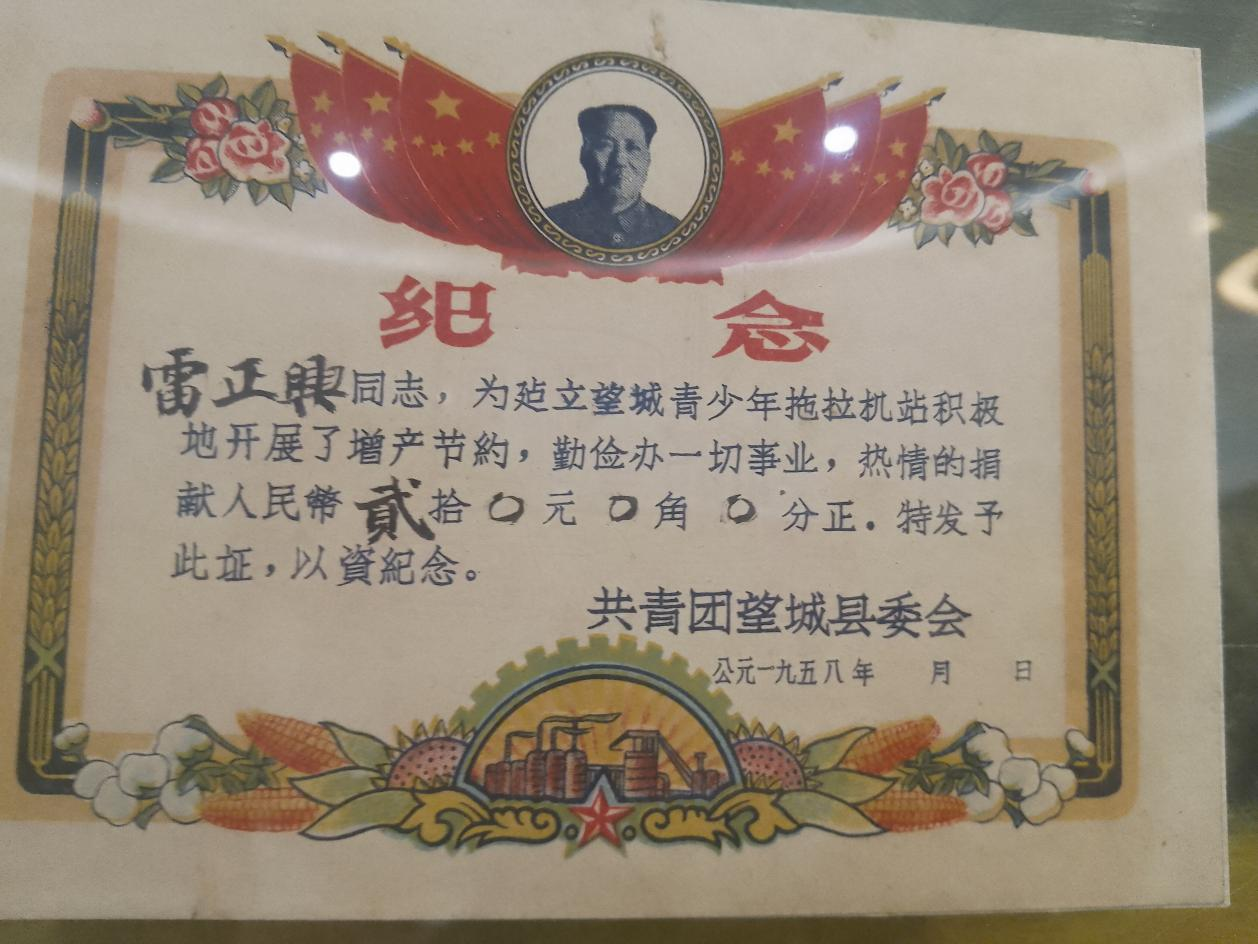 纪念
雷正興同志，为建立望城青少年拖拉机站积极
地开展了增产节約，勤俭办一切事业，热情的捐
献人民幣貳拾〇元〇角〇分正．特发予
此証，以資紀念。
共青团望城县委会
公元一九五八年 月 日